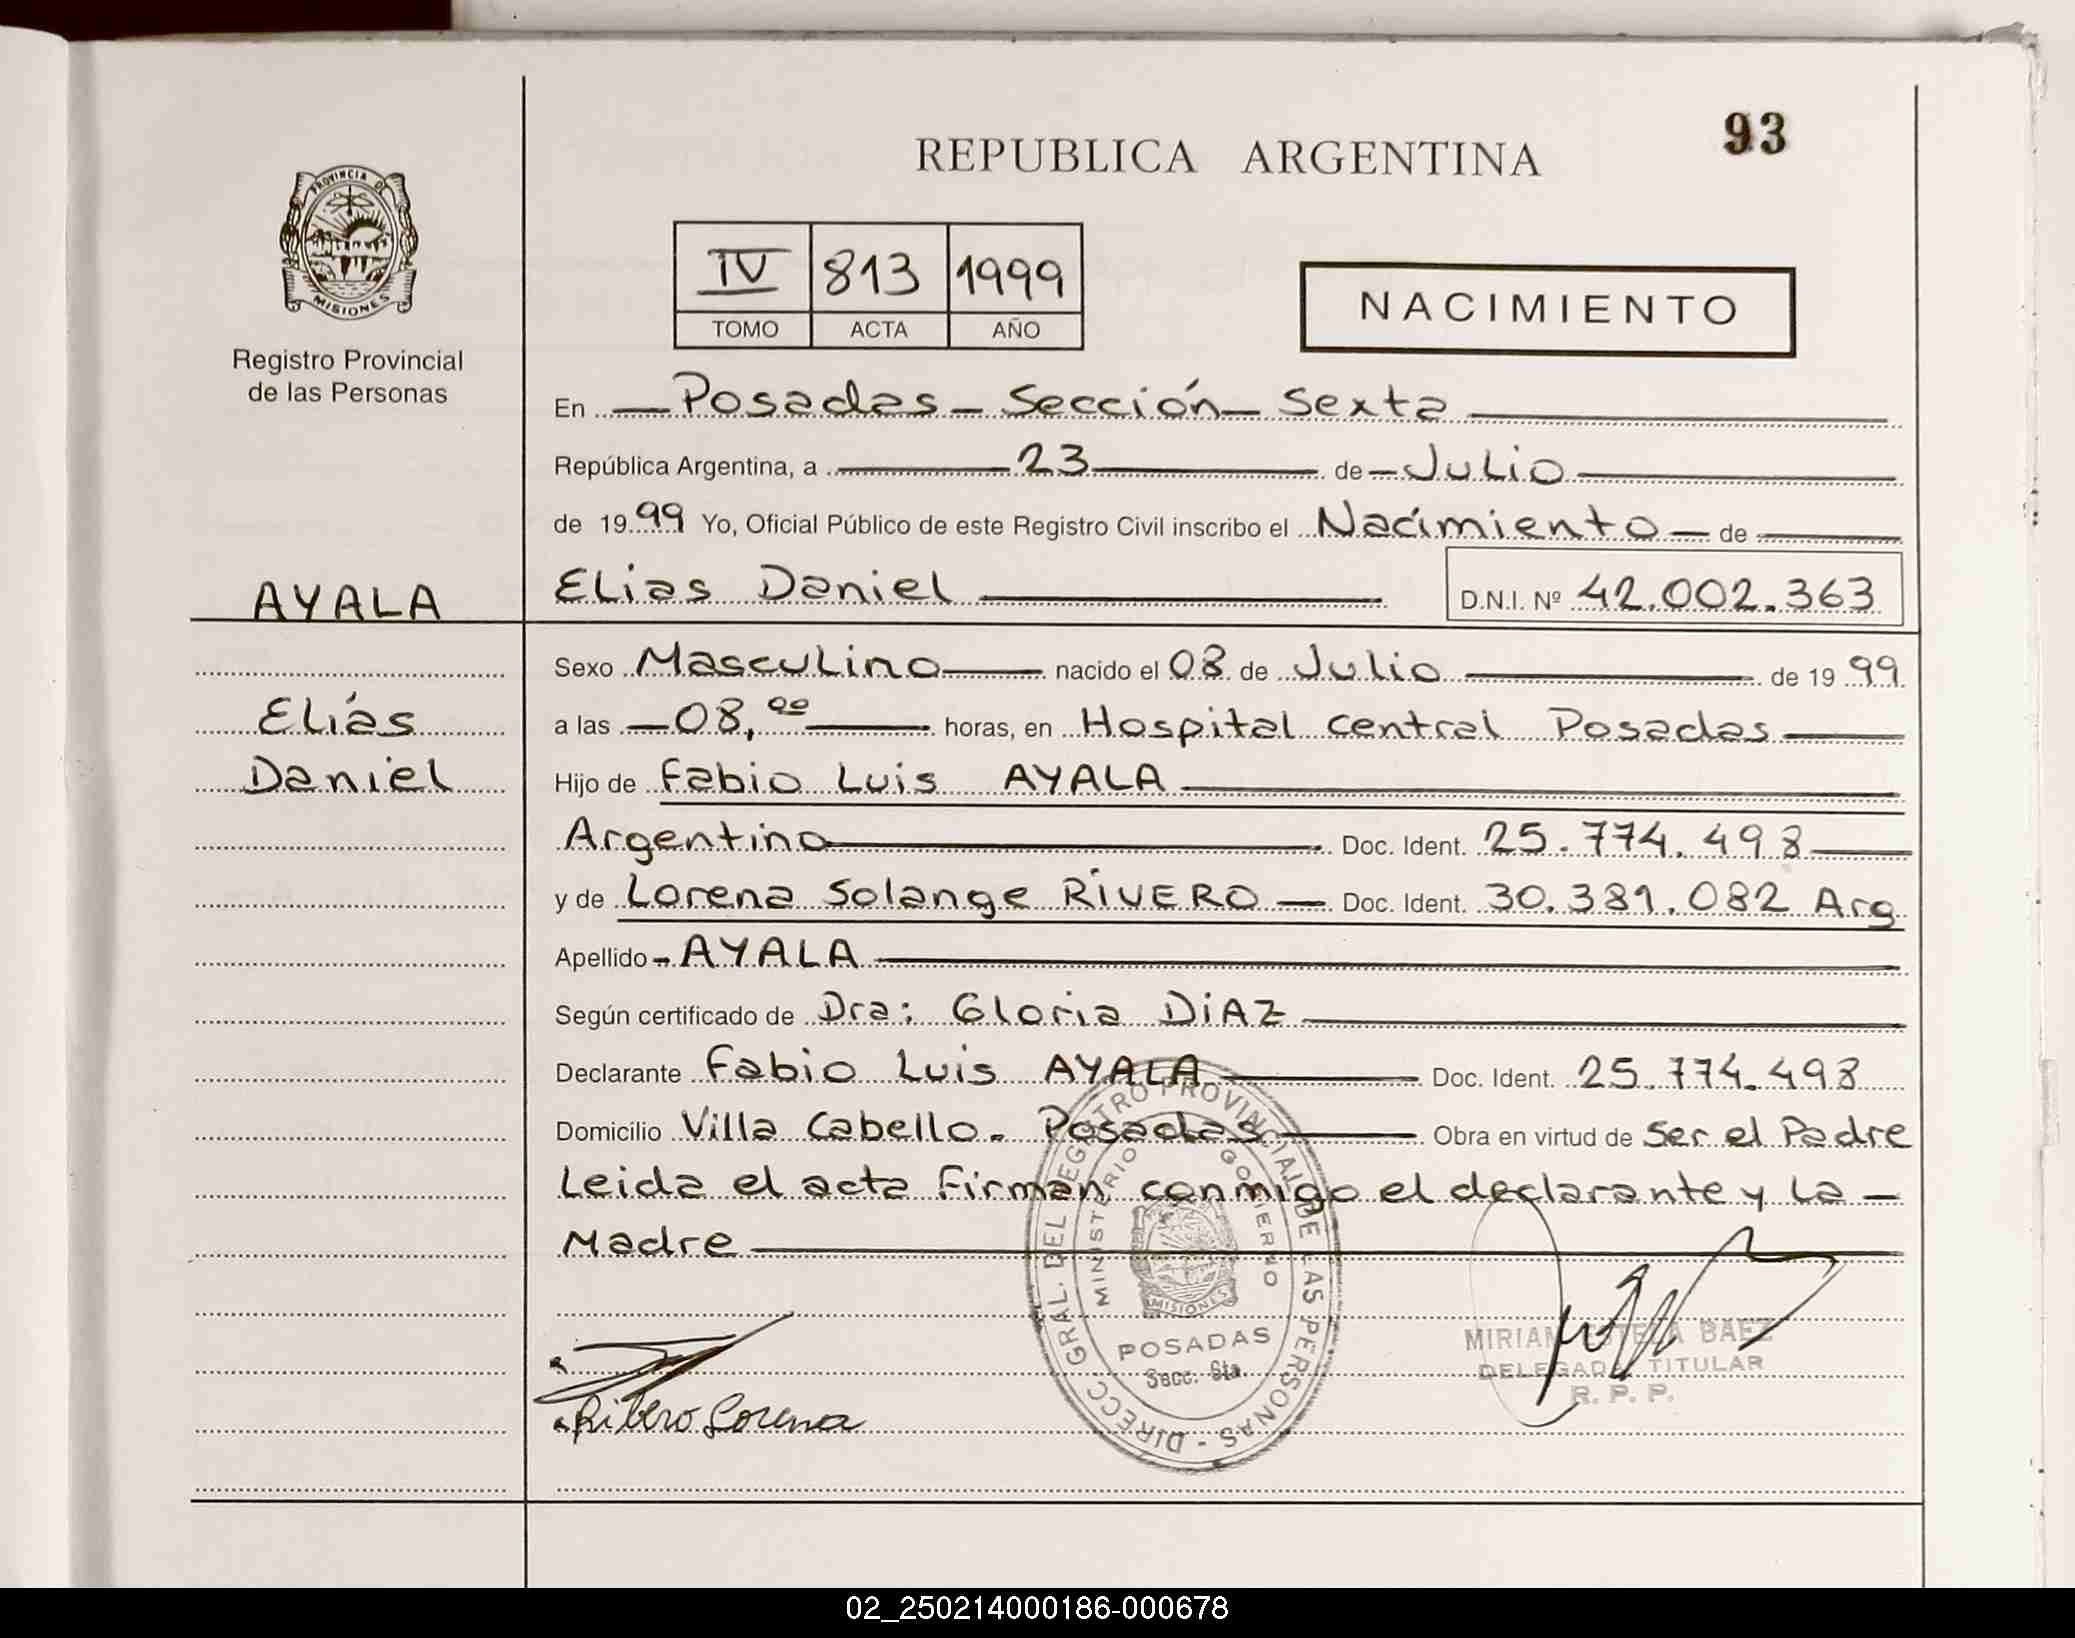 93
REPUBLICA ARGENTINA
PROVINCIA DE
MISIONES
Registro Provincial
de las Personas
IV 813 1999
TOMO ACTA AÑO
NACIMIENTO
En Posadas - Sección - Sexta
República Argentina, a 23 de Julio
de 1999 Yo, Oficial Público de este Registro Civil inscribo el Nacimiento de
AYALA
Elias Daniel D.N.I. Nº 42.002.363
Sexo Masculino nacido el 08 de Julio de 1999
Elías
a las 08,00 horas, en Hospital Central Posadas
Daniel
Hijo de Fabio Luis AYALA
Argentino Doc. Ident. 25.774.498
y de Lorena Solange RIVERO Doc. Ident. 30.381.082 Arg
Apellido AYALA
Según certificado de Dra: Gloria DIAZ
Declarante Fabio Luis AYALA Doc. Ident. 25.774.498
Domicilio Villa Cabello. Posadas Obra en virtud de Ser el Padre
Leida el acta Firman conmigo el declarante y La
Madre
DIRECC GRAL. DEL REGISTRO PROVINCIAL DE LAS PERSONAS -
MINISTERIO GOBIERNO
MISIONES
POSADAS
Secc. 6ta.
MIRIAM BAEZ
DELEGADA TITULAR
R. P. P.
Ribero Lorena
02_250214000186-000678